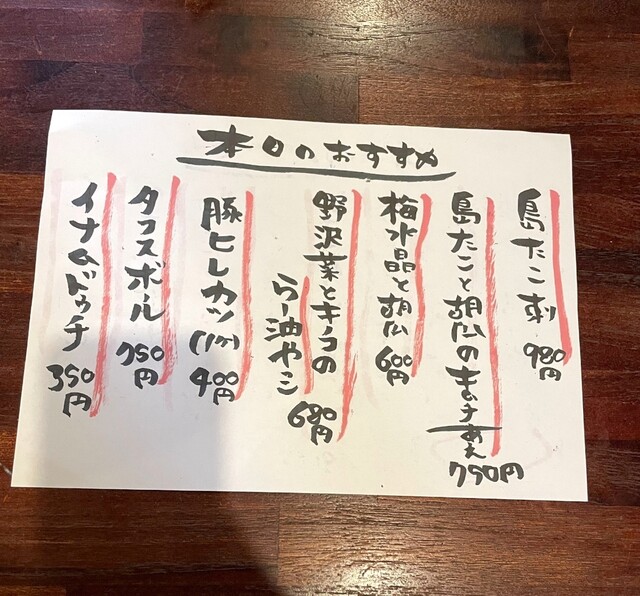 本日のおすすめ
島たこ刺 980円
島たこと胡瓜のキムチあえ 750円
梅水晶と胡瓜 600円
野沢菜とキノコの
らー油やっこ 680円
豚ヒレカツ(1ヶ) 400円
タコスボール 750円
イナムドゥチ 350円